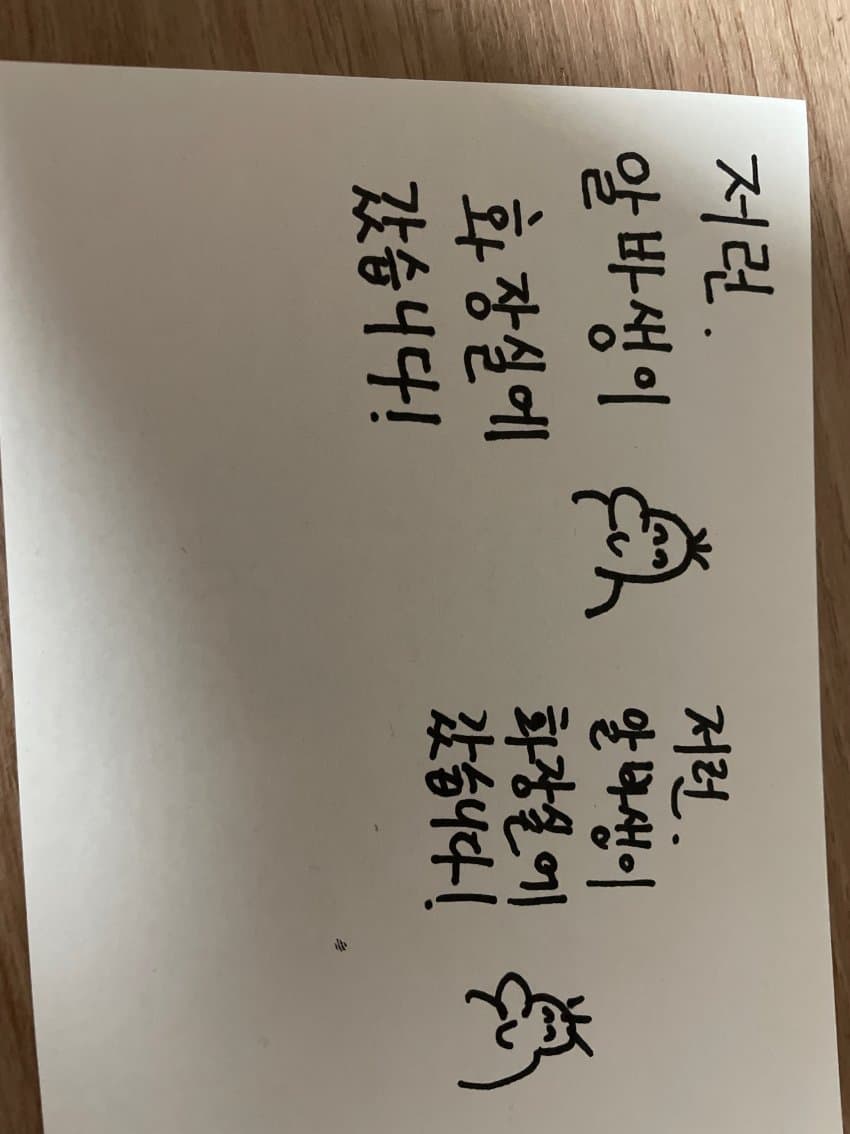 저런.
알바생이
화장실에
갔습니다!
저런.
알바생이
화장실에
갔습니다!